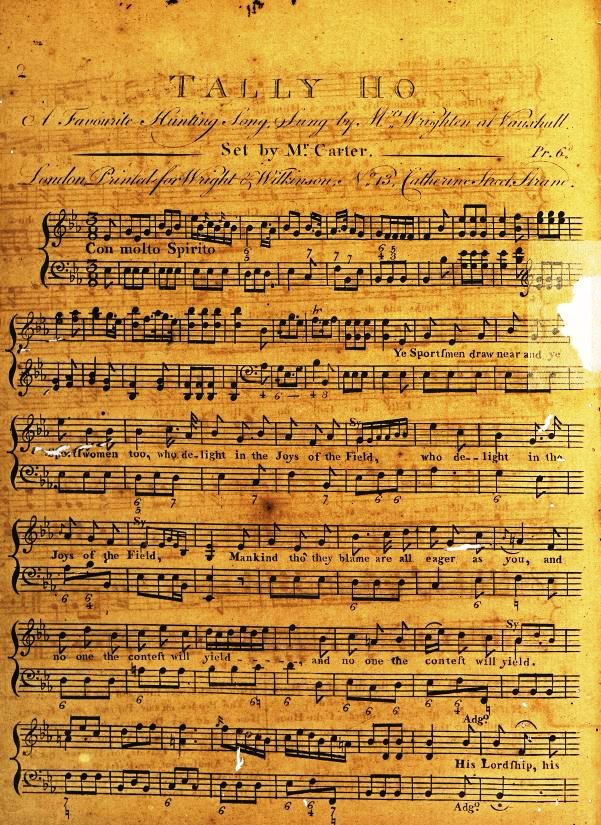 2
TALLY HO
A Favourite Hunting Song, Sung by Mrs Wrighten at Vauxhall.
Set by Mr. Carter.
Pr. 6d
London Printed for Wright & Wilkinson, No. 13, Catherine Street Strand.
Con molto Spirito
6 3 7 7 7 6 4 5 3
tr
Ye Sportſmen draw near and ye
4 6 4 3
Sy
ſportſwomen too, who de-light in the Joys of the Field, who de--light in the
6 5 7 7 6 6
Sy
Joys of the Field, Mankind tho' they blame are all eager as you, and
6 6 4 6
Sy
no one the conteſt will yield - - - - -, and no one the conteſt will yield.
6 6 6 6 6 6 6 6 4
Adgo.
His Lordſhip, his
7 6 6 6 4 7
Adgo.